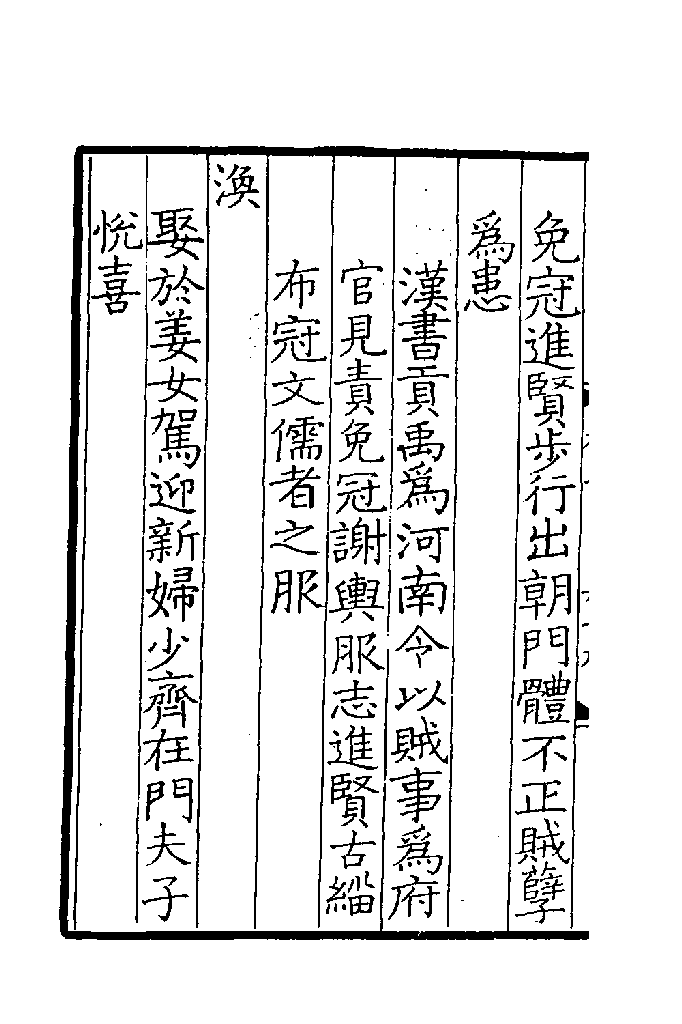 免冠進賢步行出朝門體不正賊孽
爲患
漢書貢禹爲河南令以賊事爲府
官見責免冠謝輿服志進賢古緇
布冠文儒者之服
渙
娶於姜女駕迎新婦少齊在門夫子
悅喜